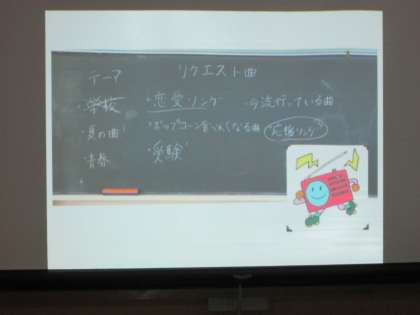 テーマ　リクエスト曲
・学校　・恋愛ソング　・今流行っている曲
・夏の曲　・ポップコーン食べたくなる曲　応援ソング
・青春　・受験